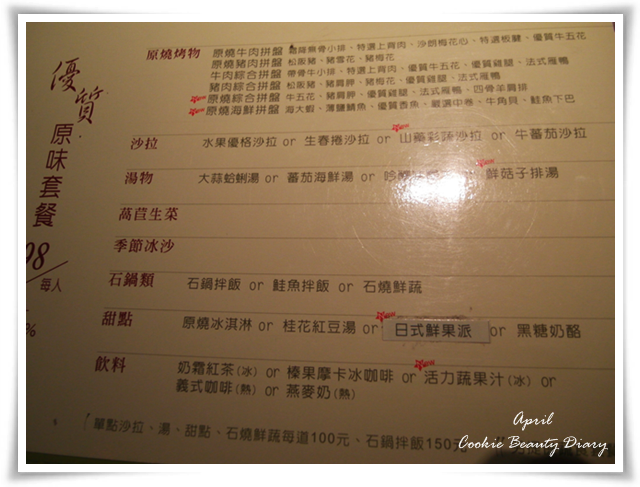 優質原味套餐
98/每人
%
原燒烤物
原燒牛肉拼盤 霜降無骨小排、特選上背肉、沙朗梅花心、特選板腱、優質牛五花
原燒豬肉拼盤 松阪豬、豬雪花、豬梅花
牛肉綜合拼盤 帶骨牛小排、特選上背肉、優質牛五花、優質雞腿、法式雁鴨
豬肉綜合拼盤 松阪豬、豬肩胛、豬梅花、優質雞腿、法式雁鴨
原燒綜合拼盤 牛五花、豬肩胛、優質雞腿、法式雁鴨、四骨羊肩排
原燒海鮮拼盤 海大蝦、薄鹽鯖魚、優質香魚、嚴選中卷、牛角貝、鮭魚下巴
沙拉 水果優格沙拉 or 生春捲沙拉 or 山藥彩蔬沙拉 or 牛蕃茄沙拉
湯物 大蒜蛤蜊湯 or 蕃茄海鮮湯 or or 鮮菇子排湯
萵苣生菜
季節冰沙
石鍋類 石鍋拌飯 or 鮭魚拌飯 or 石燒鮮蔬
甜點 原燒冰淇淋 or 桂花紅豆湯 or 日式鮮果派 or 黑糖奶酪
飲料 奶霜紅茶(冰) or 榛果摩卡冰咖啡 or 活力蔬果汁(冰) or
義式咖啡(熱) or 燕麥奶(熱)
單點沙拉、湯、甜點、石燒鮮蔬每道100元、石鍋拌飯150元
April
Cookie Beauty Diary